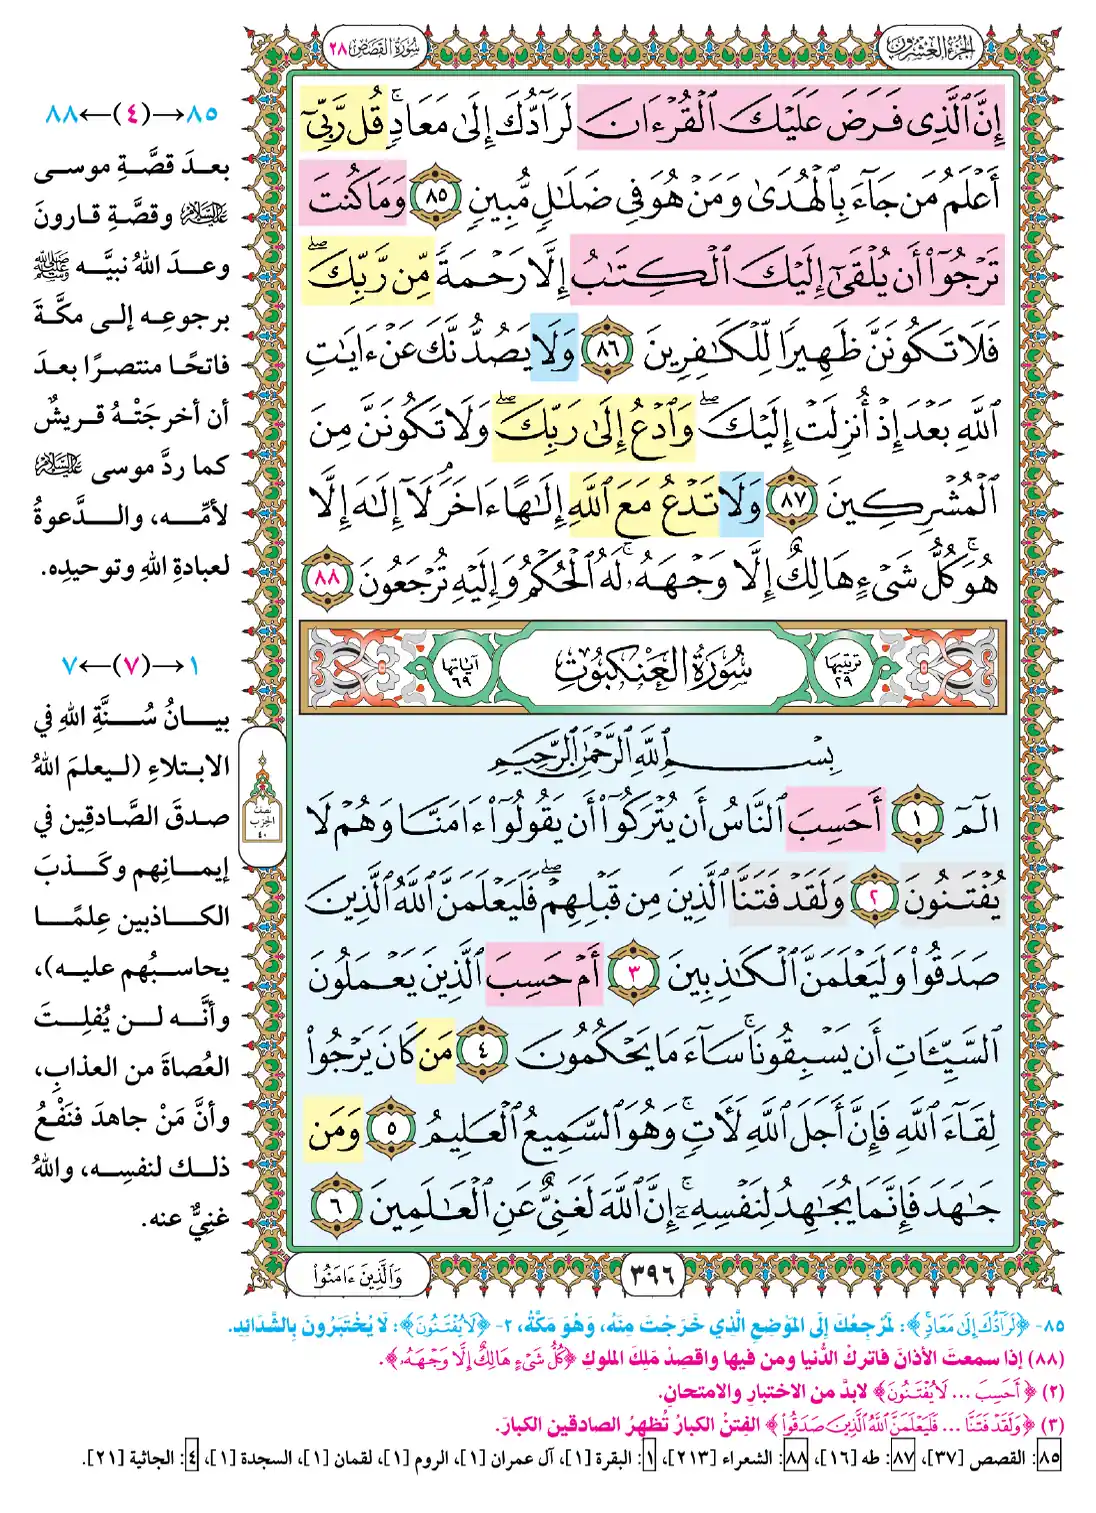 الجزء العشرون
سورة القصص ٢٨
إِنَّ ٱلَّذِى فَرَضَ عَلَيْكَ ٱلْقُرْءَانَ لَرَآدُّكَ إِلَىٰ مَعَادٍ ۚ قُل رَّبِّىٓ
أَعْلَمُ مَن جَآءَ بِٱلْهُدَىٰ وَمَنْ هُوَ فِى ضَلَٰلٍ مُّبِينٍ ٨٥ وَمَا كُنتَ
تَرْجُوٓا۟ أَن يُلْقَىٰٓ إِلَيْكَ ٱلْكِتَٰبُ إِلَّا رَحْمَةً مِّن رَّبِّكَ ۖ
فَلَا تَكُونَنَّ ظَهِيرًا لِّلْكَٰفِرِينَ ٨٦ وَلَا يَصُدُّنَّكَ عَنْ ءَايَٰتِ
ٱللَّهِ بَعْدَ إِذْ أُنزِلَتْ إِلَيْكَ ۖ وَٱدْعُ إِلَىٰ رَبِّكَ ۖ وَلَا تَكُونَنَّ مِنَ
ٱلْمُشْرِكِينَ ٨٧ وَلَا تَدْعُ مَعَ ٱللَّهِ إِلَٰهًا ءَاخَرَ ۘ لَآ إِلَٰهَ إِلَّا
هُوَ ۚ كُلُّ شَىْءٍ هَالِكٌ إِلَّا وَجْهَهُۥ ۚ لَهُ ٱلْحُكْمُ وَإِلَيْهِ تُرْجَعُونَ ٨٨
ترتيبها ٢٩ سورة العنكبوت آياتها ٦٩
بِسْمِ ٱللَّهِ ٱلرَّحْمَٰنِ ٱلرَّحِيمِ
الٓمٓ ١ أَحَسِبَ ٱلنَّاسُ أَن يُتْرَكُوٓا۟ أَن يَقُولُوٓا۟ ءَامَنَّا وَهُمْ لَا
يُفْتَنُونَ ٢ وَلَقَدْ فَتَنَّا ٱلَّذِينَ مِن قَبْلِهِمْ ۖ فَلَيَعْلَمَنَّ ٱللَّهُ ٱلَّذِينَ
صَدَقُوا۟ وَلَيَعْلَمَنَّ ٱلْكَٰذِبِينَ ٣ أَمْ حَسِبَ ٱلَّذِينَ يَعْمَلُونَ
ٱلسَّيِّـَٔاتِ أَن يَسْبِقُونَا ۚ سَآءَ مَا يَحْكُمُونَ ٤ مَن كَانَ يَرْجُوا۟
لِقَآءَ ٱللَّهِ فَإِنَّ أَجَلَ ٱللَّهِ لَءَاتٍ ۚ وَهُوَ ٱلسَّمِيعُ ٱلْعَلِيمُ ٥ وَمَن
جَٰهَدَ فَإِنَّمَا يُجَٰهِدُ لِنَفْسِهِۦٓ ۚ إِنَّ ٱللَّهَ لَغَنِىٌّ عَنِ ٱلْعَٰلَمِينَ ٦
٣٩٦
وَٱلَّذِينَ ءَامَنُوا۟
٨٥→(٤)←٨٨
بعدَ قصَّةِ موسى
عليه السلام وقصَّةِ قارونَ
وعدَ اللهُ نبيَّه ﷺ
برجوعِه إلى مكَّةَ
فاتحًا منتصرًا بعدَ
أن أخرجَتْهُ قريشٌ
كما ردَّ موسى عليه السلام
لأمِّه، والدَّعوةُ
لعبادةِ اللهِ وتوحيدِه.
١→(٧)←٧
بيانُ سُنَّةِ اللهِ في
الابتلاءِ (ليعلمَ اللهُ
صدقَ الصَّادقِين في
إيمانِهم وكَذبَ
الكاذبين عِلمًا
يحاسبُهم عليه)،
وأنَّه لن يُفلِتَ
العُصاةَ من العذابِ،
وأنَّ مَنْ جاهدَ فنَفْعُ
ذلك لنفسِه، واللهُ
غنِيٌّ عنه.
نصف
الحزب
٤٠
٨٥- ﴿لَرَآدُّكَ إِلَىٰ مَعَادٍ﴾: لَمُرْجِعُكَ إِلَى المَوْضِعِ الَّذِي خَرَجْتَ مِنْهُ، وَهُوَ مَكَّةُ، ٢- ﴿لَا يُفْتَنُونَ﴾: لَا يُخْتَبَرُونَ بِالشَّدَائِدِ.
(٨٨) إذا سمعتَ الأذانَ فاتركْ الدُّنيا ومن فيها واقصدْ مَلِكَ الملوكِ ﴿كُلُّ شَىْءٍ هَالِكٌ إِلَّا وَجْهَهُۥ﴾.
(٢) ﴿أَحَسِبَ ... لَا يُفْتَنُونَ﴾ لابدَّ من الاختبارِ والامتحانِ.
(٣) ﴿وَلَقَدْ فَتَنَّا ... فَلَيَعْلَمَنَّ ٱللَّهُ ٱلَّذِينَ صَدَقُوا۟﴾ الفِتنُ الكبارُ تُظهرُ الصادقين الكبارَ.
٨٥: القصص [٣٧]، ٨٧: طه [١٦]، ٨٨: الشعراء [٢١٣]، ١: البقرة [١]، آل عمران [١]، الروم [١]، لقمان [١]، السجدة [١]، ٤: الجاثية [٢١].